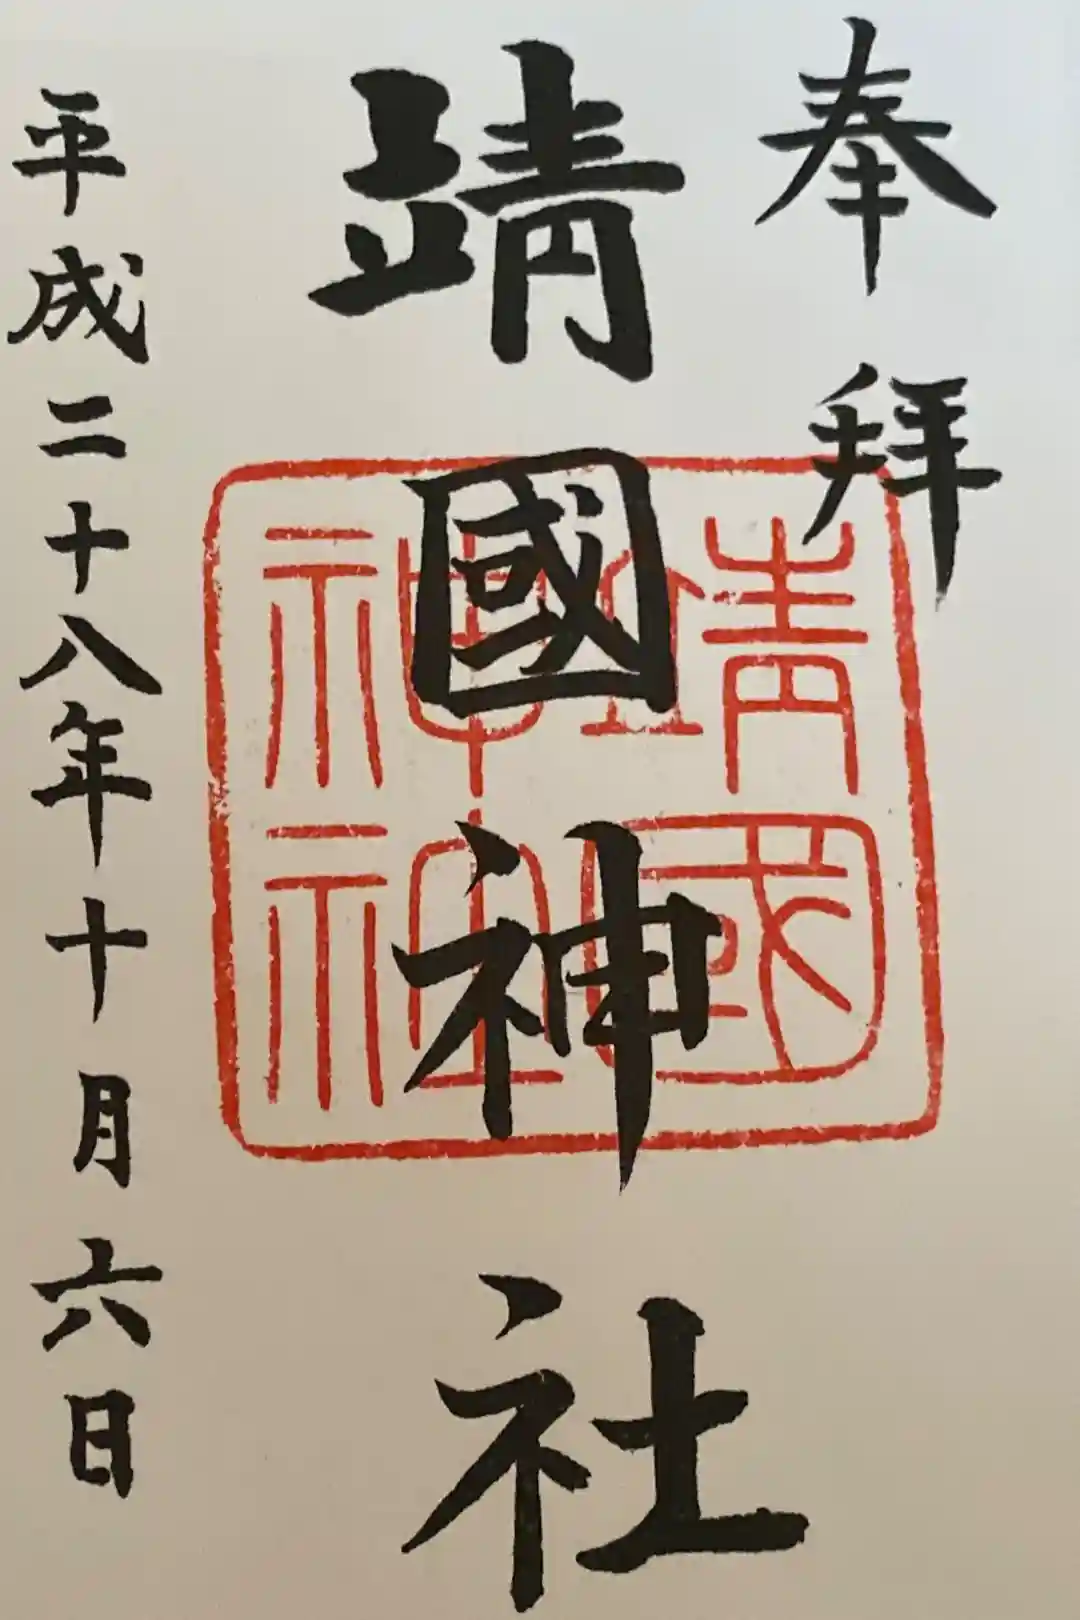 奉拜
靖國神社
靖國
神社
平成二十八年十月六日